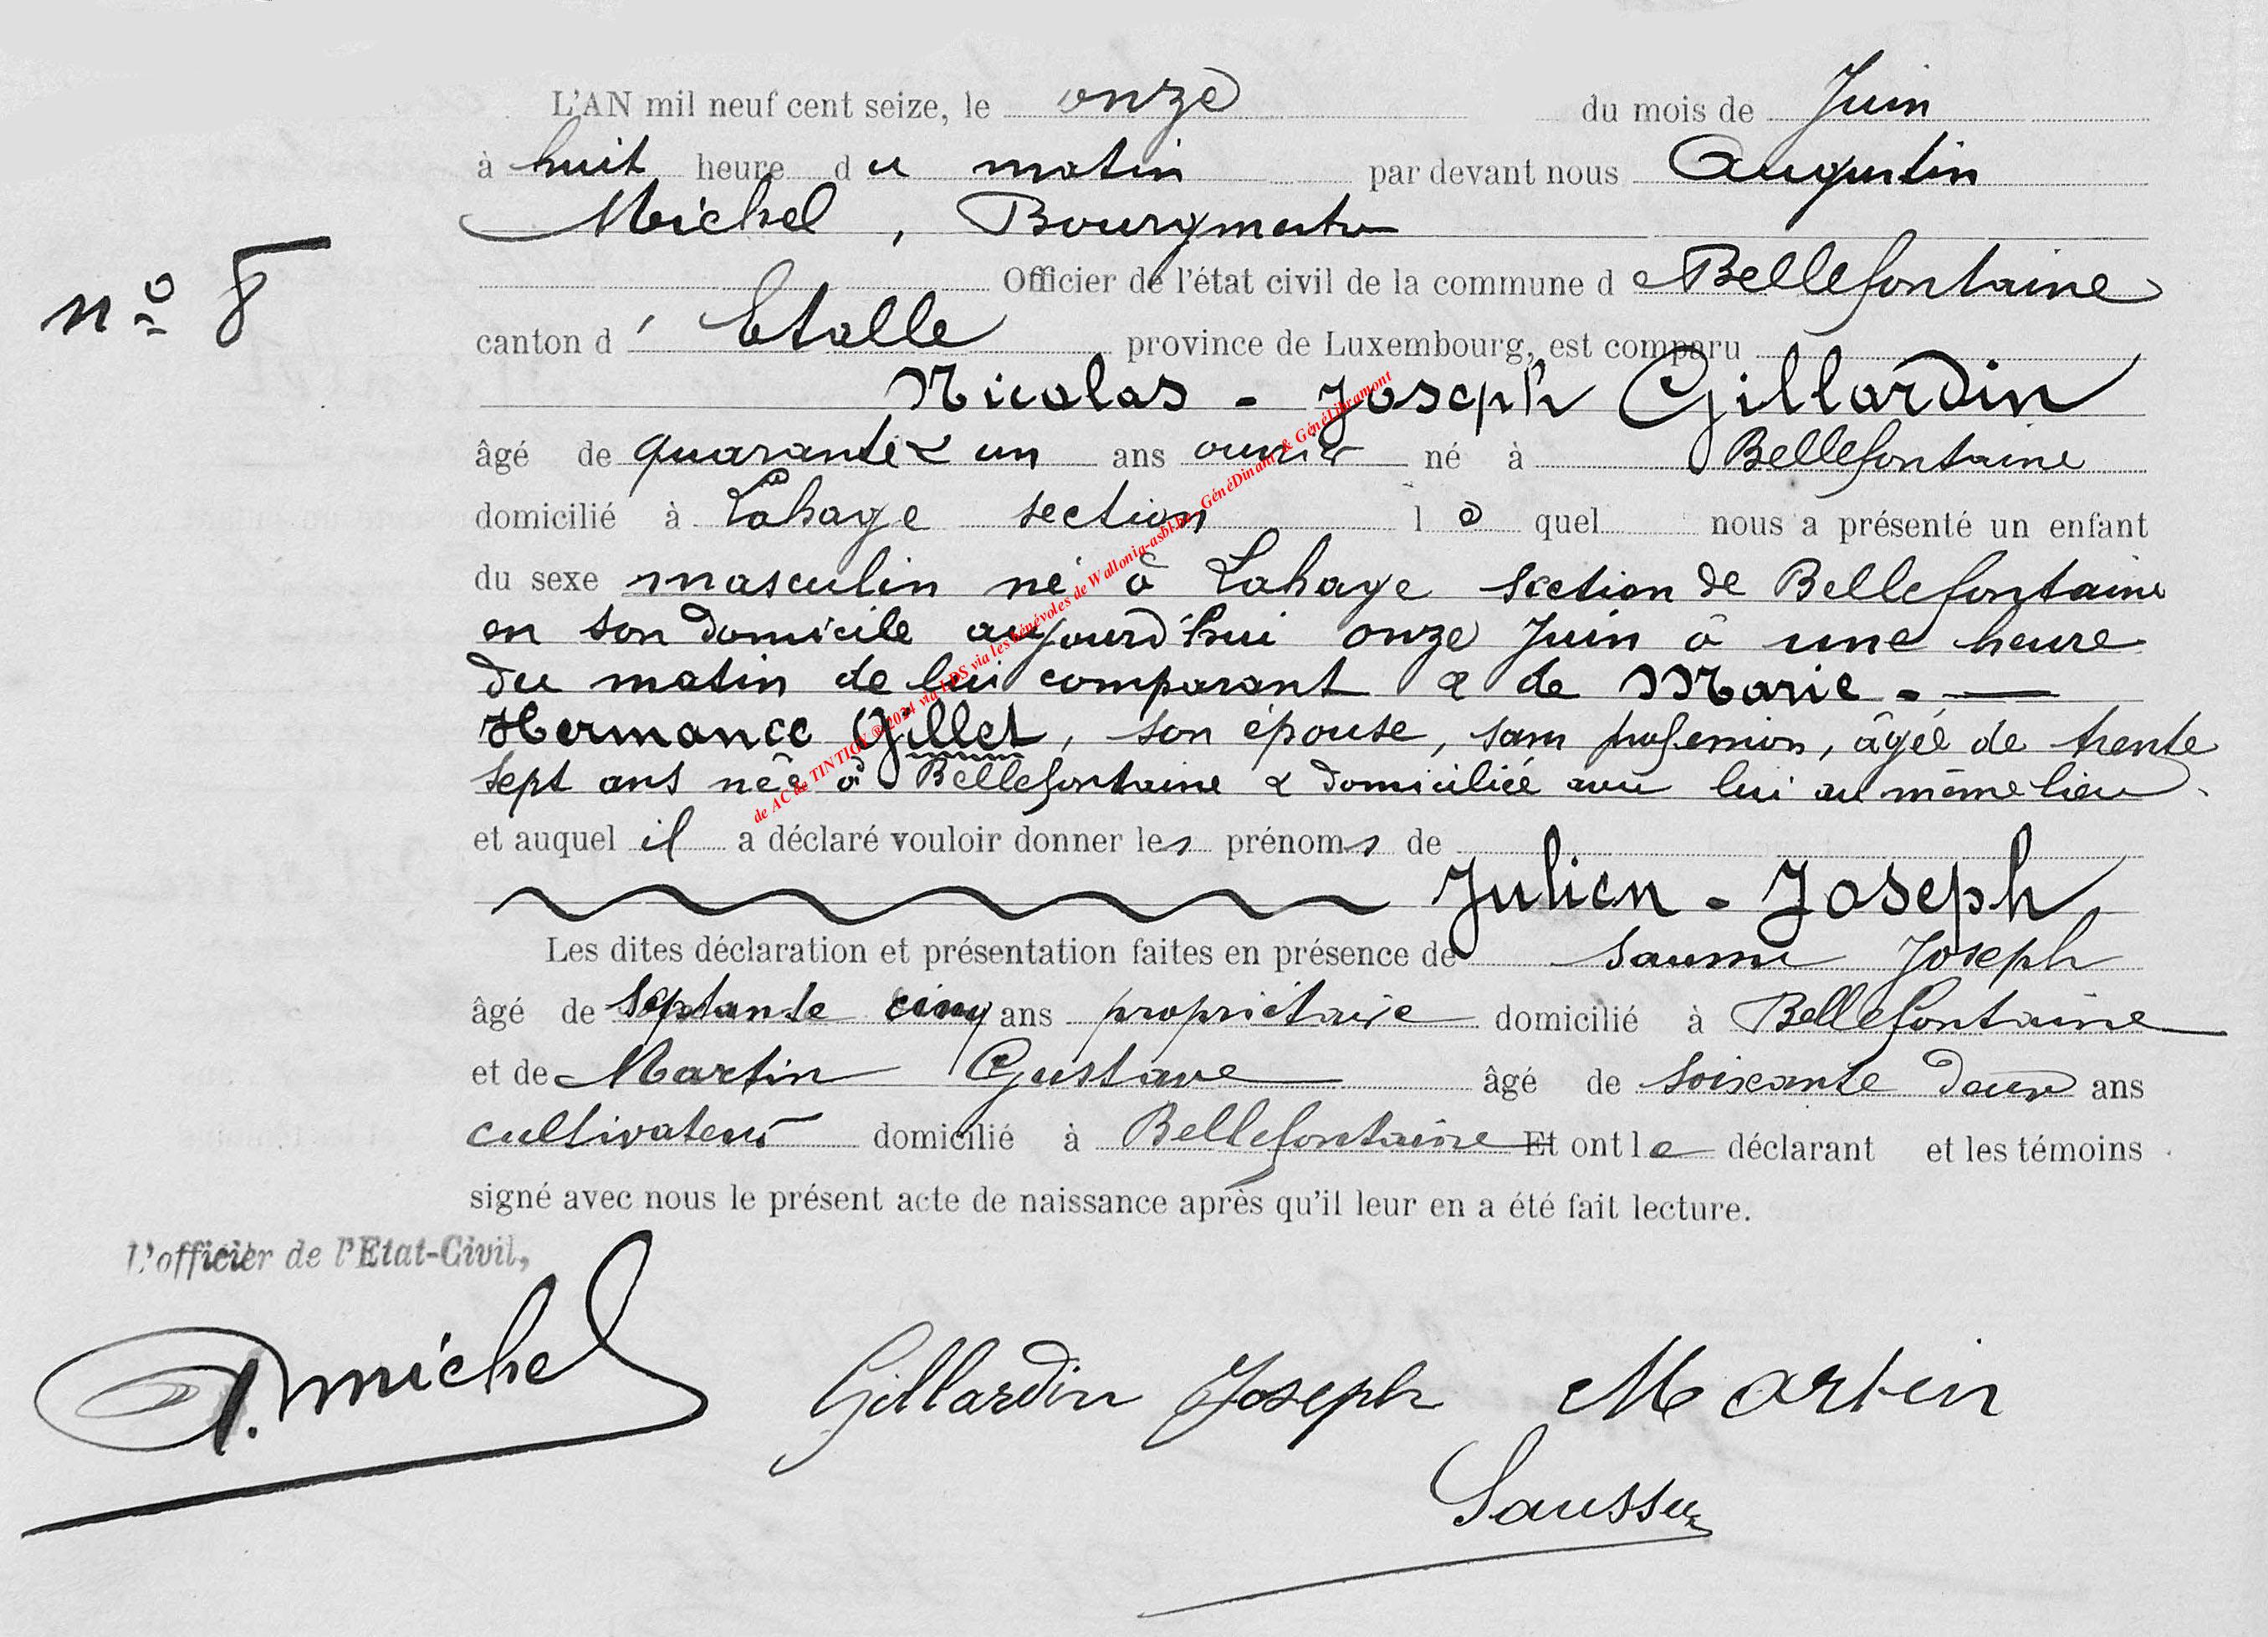 L'AN mil neuf cent seize, le onze du mois de Juin
à huit heure du matin par devant nous Augustin
Michel, Bourgmestre
n° 8
Officier de l'état civil de la commune d Bellefontaine
canton d' Etalle province de Luxembourg, est comparu
Nicolas - Joseph Gillardin
âgé de quarante & un ans ouvrier né à Bellefontaine
domicilié à Lahage section le quel nous a présenté un enfant
du sexe masculin né à Lahage section de Bellefontaine
en son domicile aujourd'hui onze Juin à une heure
du matin de lui comparant & de Marie -
Hermance Gillet, son épouse, sans profession, âgée de trente
sept ans née à Bellefontaine & domiciliée avec lui au même lieu
et auquel il a déclaré vouloir donner les prénoms de
Julien - Joseph
Les dites déclaration et présentation faites en présence de Joseph
âgé de septante cinq ans propriétaire domicilié à Bellefontaine
et de Martin Gustave âgé de soixante deux ans
cultivateur domicilié à Bellefontaine Et ont le déclarant et les témoins
signé avec nous le présent acte de naissance après qu'il leur en a été fait lecture.
L'officier de l'Etat-Civil,
A. Michel
Gillardin Joseph Martin
de AC de TINTIGY ® 2024 via LDS via les bénévoles de Wallonia-asbl.be - GénéDinant & GénéLibramont